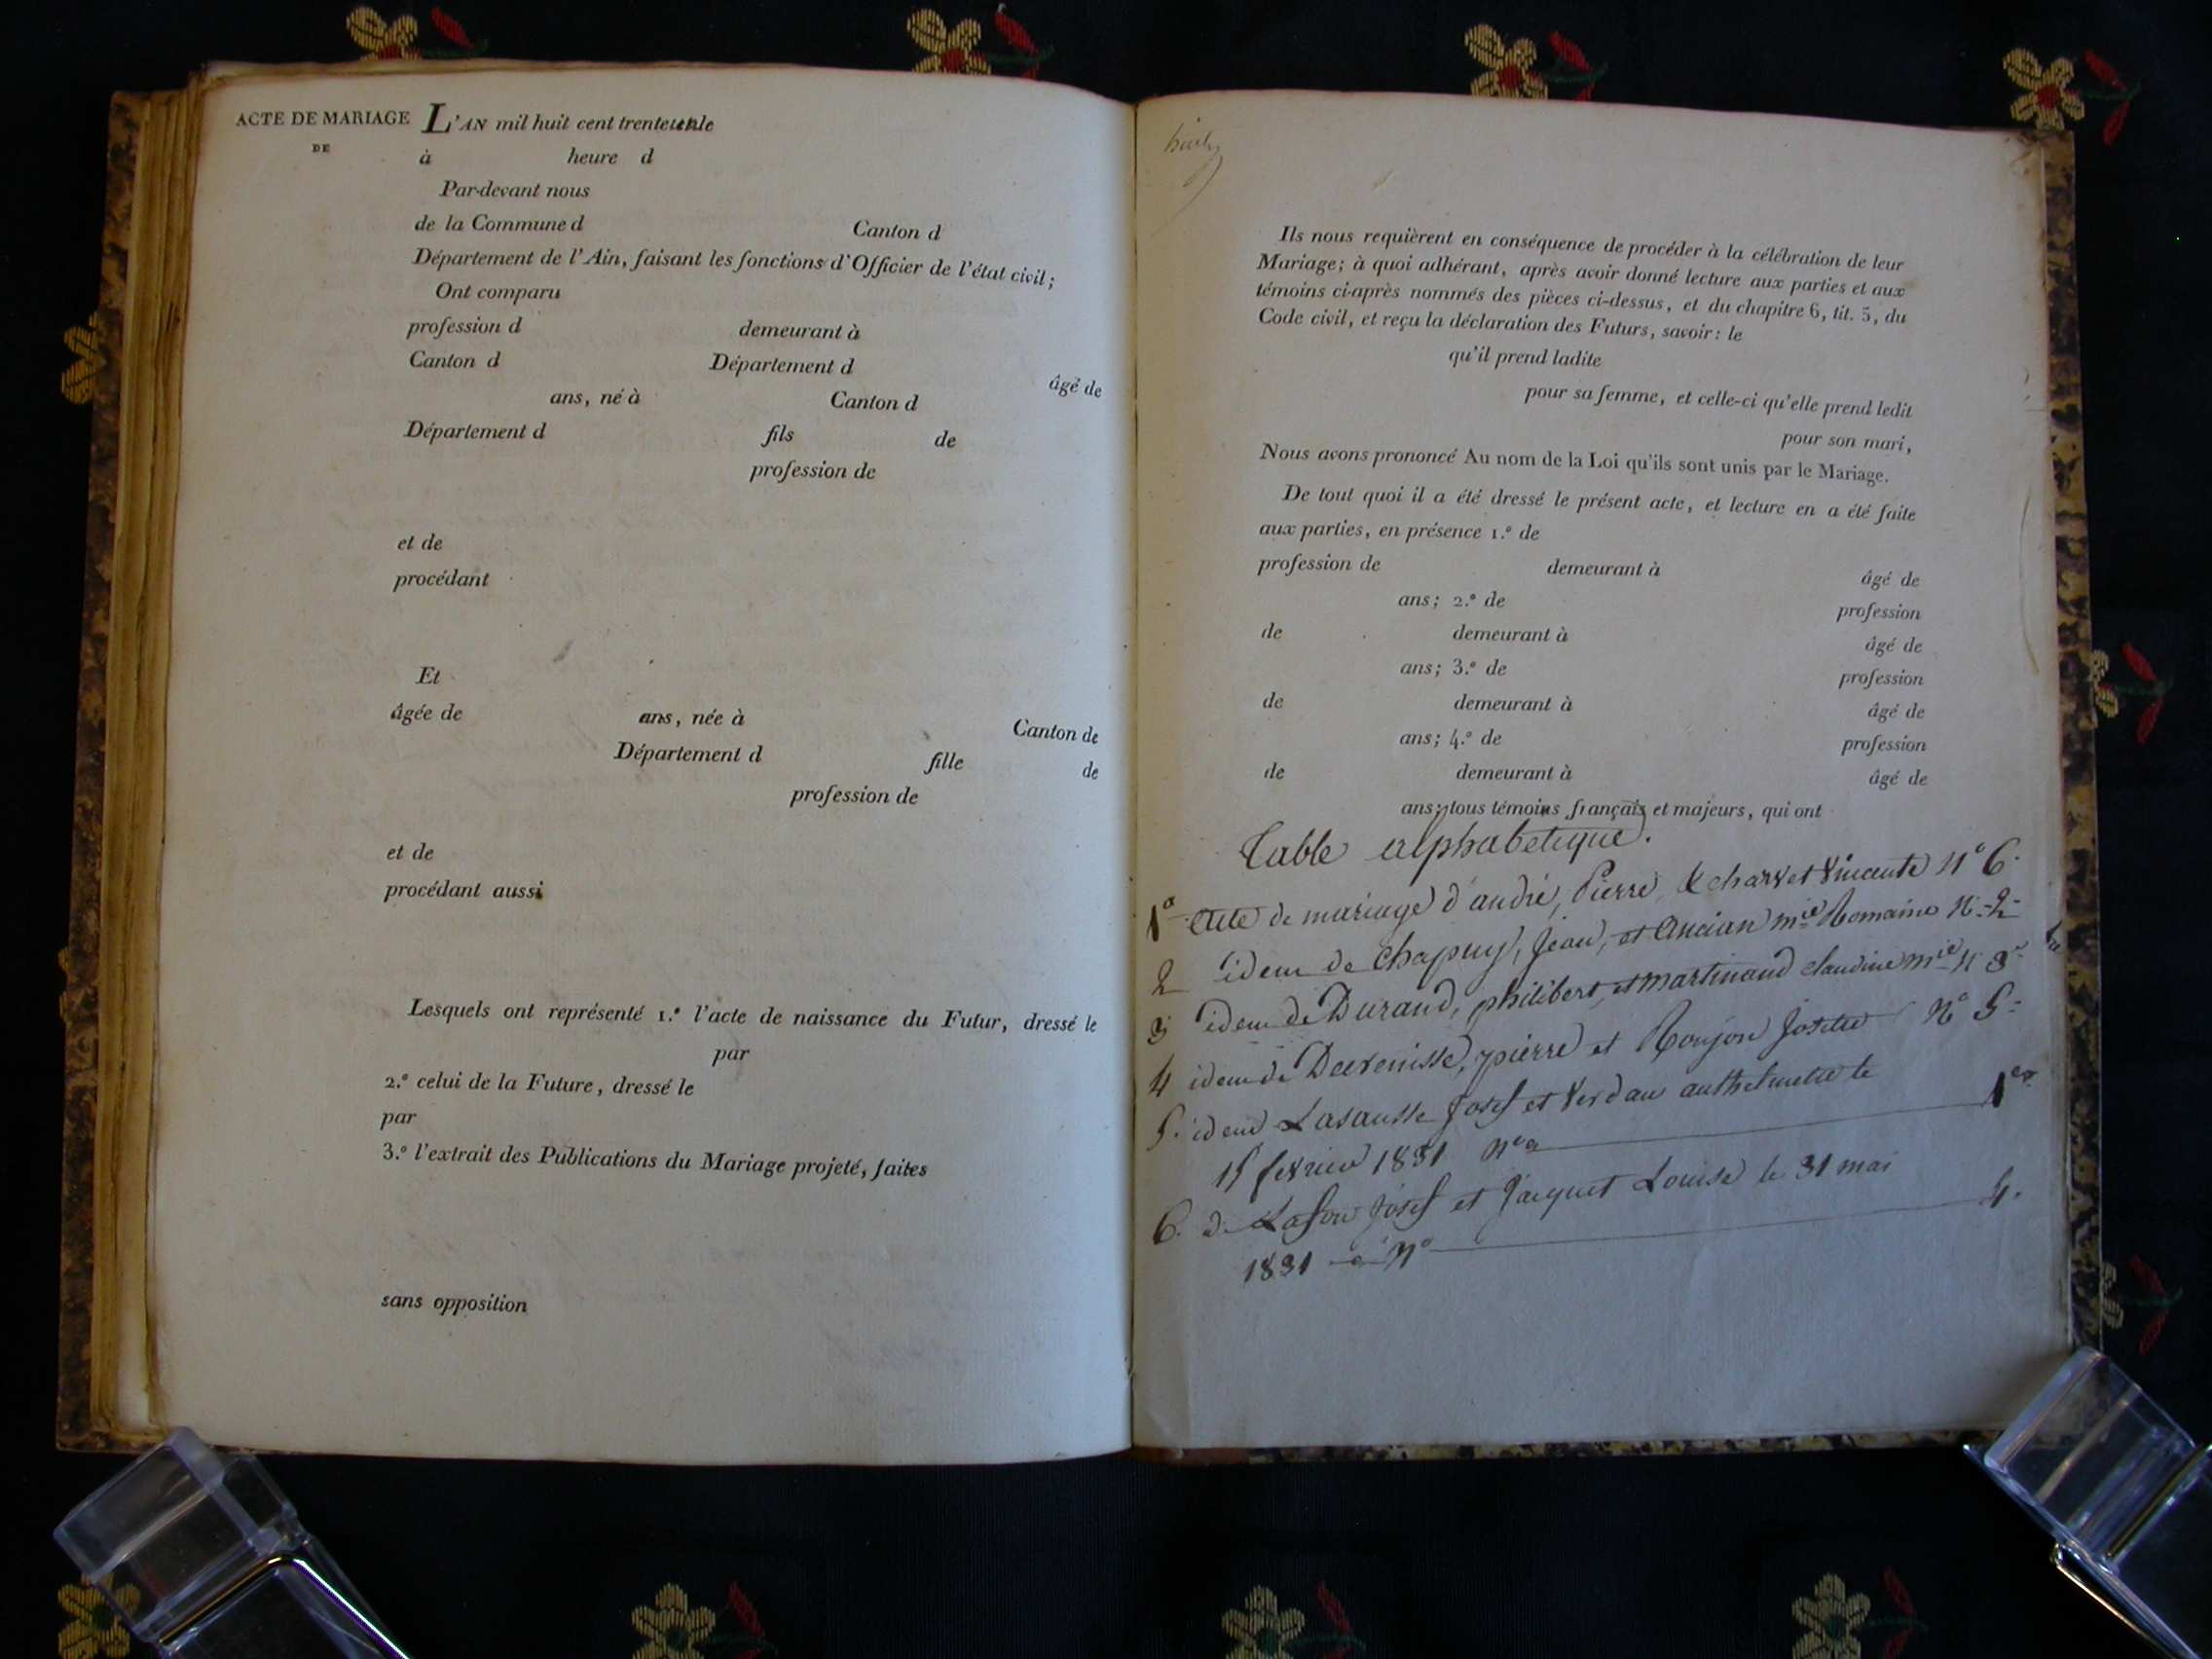 ACTE DE MARIAGE
DE
L'AN mil huit cent trente
à heure d
Par-devant nous
de la Commune d Canton d
Département de l'Ain, faisant les fonctions d'Officier de l'état civil;
Ont comparu
profession d demeurant à
Canton d Département d
âgé de
ans, né à Canton d
Département d fils de
profession de
et de
procédant
Et
âgée de ans, née à Canton de
Département d fille de
profession de
et de
procédant aussi
Lesquels ont représenté 1.° l'acte de naissance du Futur, dressé le
par
2.° celui de la Future, dressé le
par
3.° l'extrait des Publications du Mariage projeté, faites
sans opposition
Ils nous requièrent en conséquence de procéder à la célébration de leur
Mariage; à quoi adhérant, après avoir donné lecture aux parties et aux
témoins ci-après nommés des pièces ci-dessus, et du chapitre 6, tit. 5, du
Code civil, et reçu la déclaration des Futurs, savoir: le
qu'il prend ladite
pour sa femme, et celle-ci qu'elle prend ledit
pour son mari,
Nous avons prononcé Au nom de la Loi qu'ils sont unis par le Mariage.
De tout quoi il a été dressé le présent acte, et lecture en a été faite
aux parties, en présence 1.° de
profession de demeurant à âgé de
ans; 2.° de profession
de demeurant à âgé de
ans; 3.° de profession
de demeurant à âgé de
ans; 4.° de profession
de demeurant à âgé de
ans; tous témoins français et majeurs, qui ont
Table alphabetique.
1° acte de mariage d'andré, Pierre, & charvet Vincente N° 6.
2 idem de Chapuy, Jean, et Ancian mie Romaine N° 2
3 idem de Durand, philibert, et martinand claudine mie N 3
4 idem de pierre et Roujon Josette N° 5
5. idem Lasausse Josef et Verdau anthelmette le
15 fevrier 1831 n° 1er
6. d. Lafon Josef et Jacquet Louise le 31 mai
1831 N° 4.